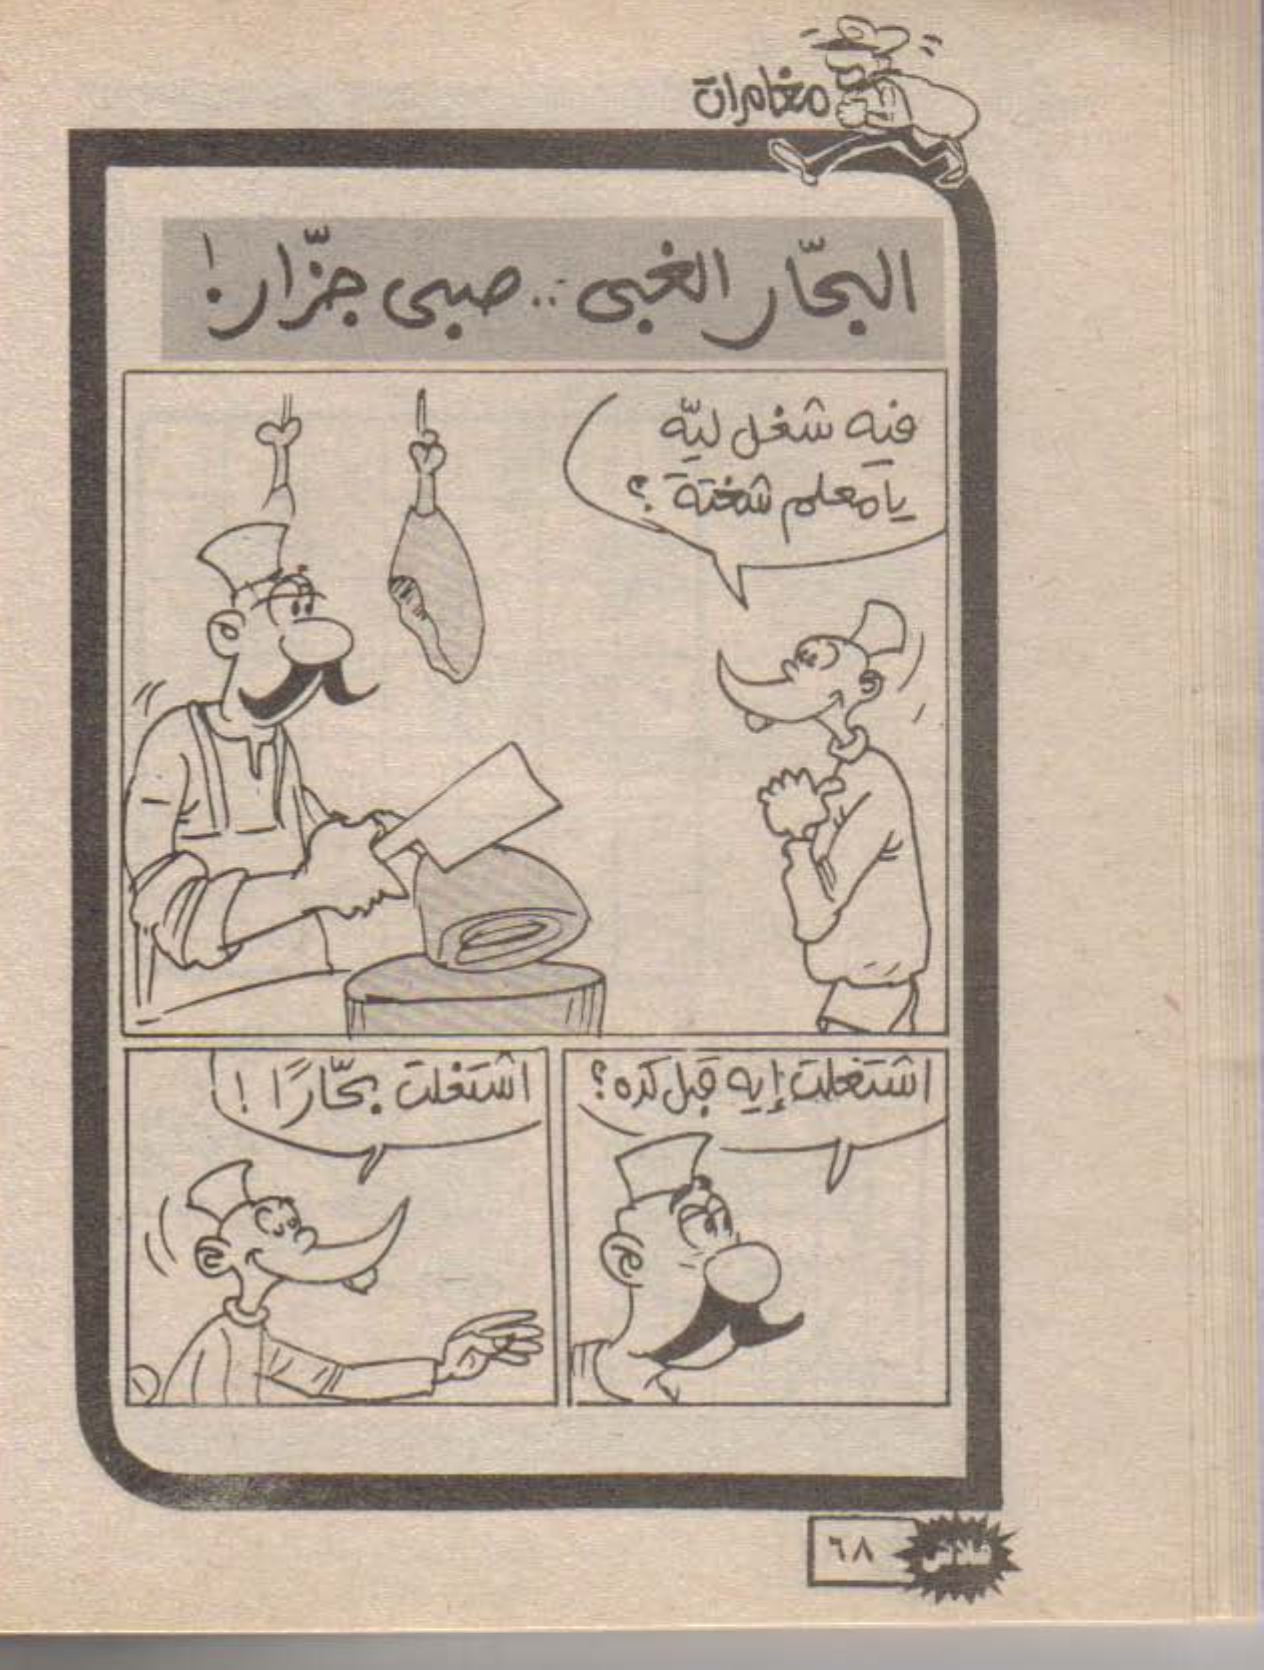 مغامرات
البحّار الغبى .. صبى جزّار !
فيه شغل ليّه
يا معلم شغتة ؟
اشتغلت إيه قبل كده ؟
اشتغلت بحّارًا !
٦٨
فلاش